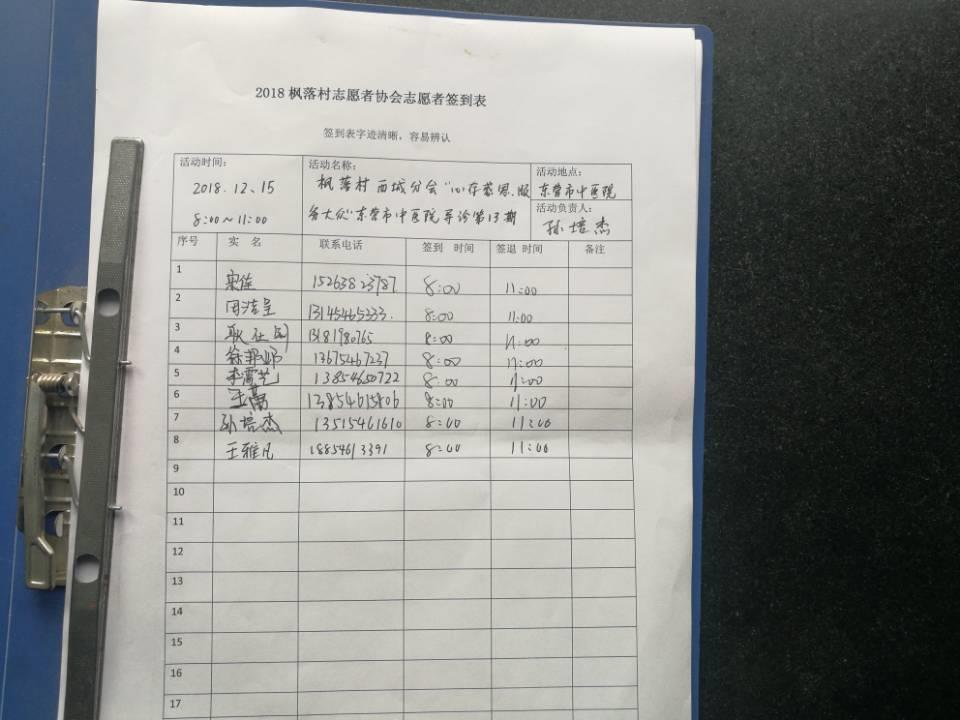 2018 枫落村志愿者协会志愿者签到表
签到表字迹清晰，容易辨认
活动时间： 活动名称： 活动地点：
2018.12、15 枫落村西城分会“心存感恩.服 东营市中医院
8:00～11:00 务大众”东营市中医院导诊第13期 活动负责人：
孙培杰
序号 实 名 联系电话 签到 时间 签退 时间 备注
1 宋佳 15263823787 8:00 11:00
2 周洁呈 13145465333. 8:00 11:00
3 耿社国 13181980765 8:00 11:00
4 徐 13675467237 8:00 11:00
5 李雪艺 13854650722 8:00 11:00
6 王 13854615806 8:00 11:00
7 孙培杰 13515461610 8:00 11:00
8 王雅凡 18854613391 8:00 11:00
9
10
11
12
13
14
15
16
17